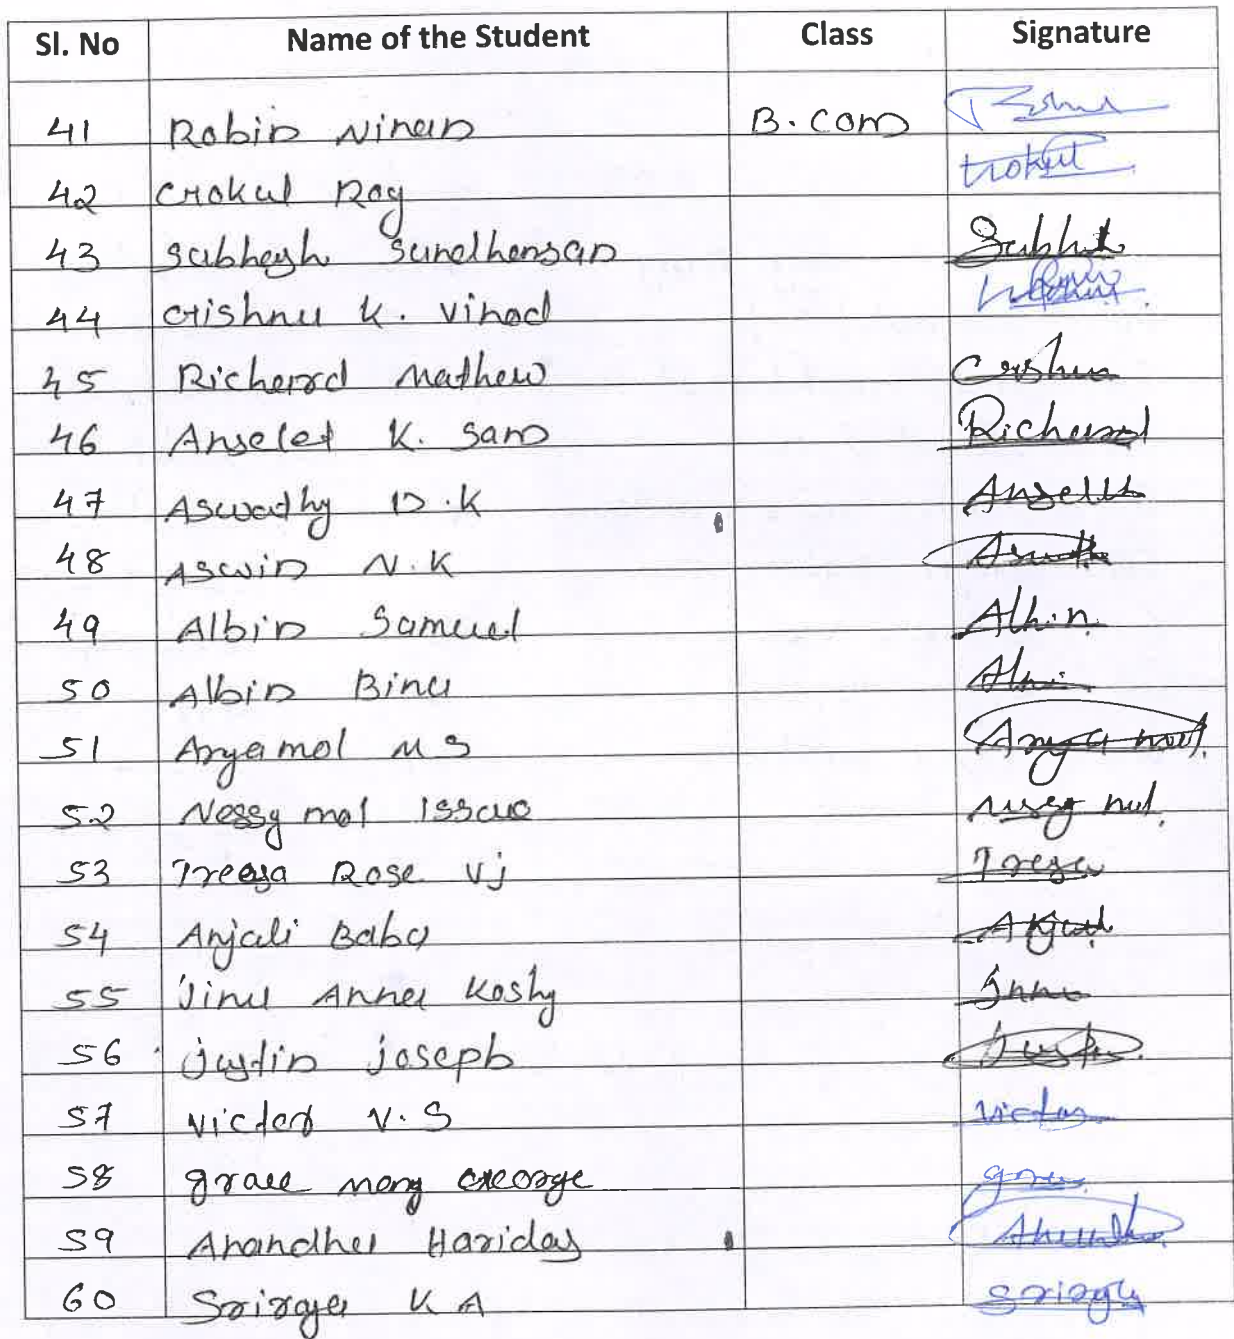 Sl. No Name of the Student Class Signature
41 Robin Ninan B.com
42 Gokul Roy Gokul
43 Sabhagh
44 Grishnu K. Vinod
45 Richard Mathew Grishnu
46 Anselet K. Sam Richard
47 Aswathy D.K
48 Aswin N.K
49 Albin Samuel Albin
50 Albin Binu
51 Aryamol M S Aryamol
52 Nessy mol Issac
53 Treesa Rose Vj Tresa
54 Anjali Babu Anjali
55 Jinu Anna Koshy
56 Justin joseph
57 Victor V.S Victor
58 grace mary George
59 Anandhu Haridas
60 Sriraga K A Sriraga